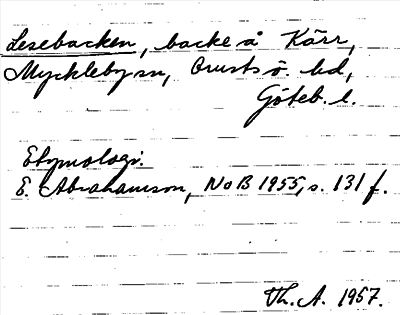 Lesebacken, backe å Kärr,
Myckleby sn, Orusts ö. hd,
Göteb. l.
Etymologi.
E. Abrahamson, NoB 1955, s. 131 f.
Th. A. 1957.